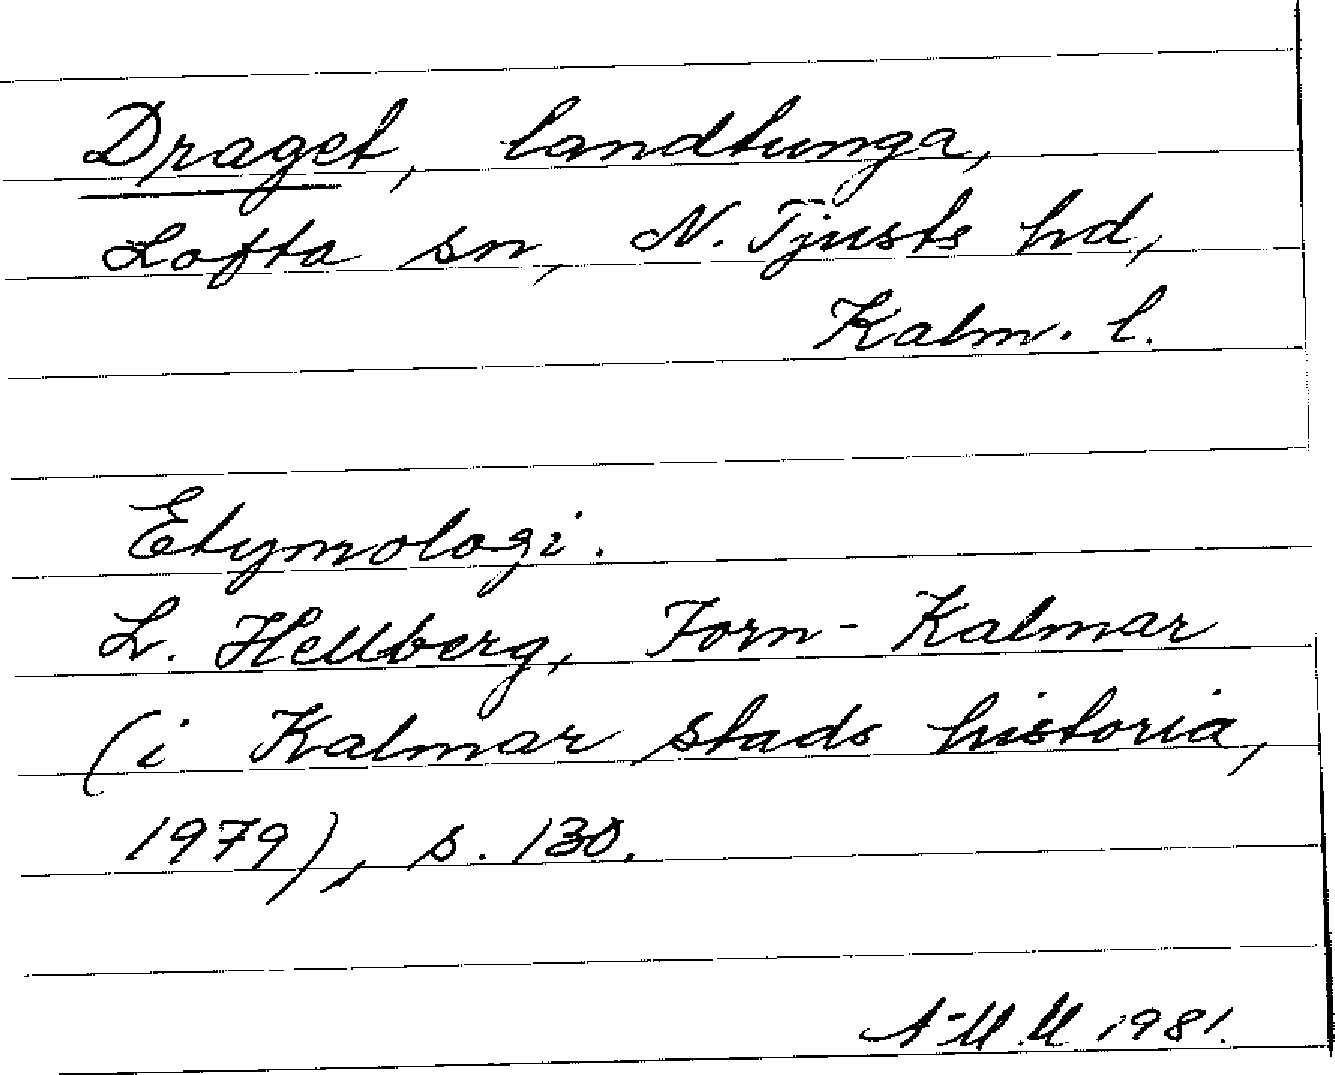 Draget, landtunga,
Lofta sn, N. Tjusts hd,
Kalm. l.
Etymologi.
L. Hellberg, Forn-Kalmar
(i Kalmar stads historia,
1979), s. 130.
A-M.M 1981.